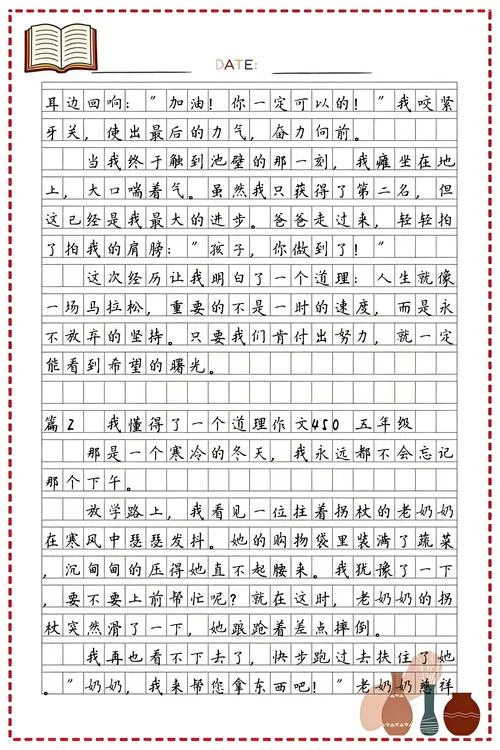 DATE:
耳边回响：“加油！你一定可以的！”我咬紧
牙关，使出最后的力气，奋力向前。
当我终于触到池壁的那一刻，我瘫坐在地
上，大口喘着气。虽然我只获得了第二名，但
这已经是我最大的进步。爸爸走过来，轻轻拍
了拍我的肩膀：“孩子，你做到了！”
这次经历让我明白了一个道理：人生就像
一场马拉松，重要的不是一时的速度，而是永
不放弃的坚持。只要我们肯付出努力，就一定
能看到希望的曙光。
篇2 我懂得了一个道理作文450 五年级
那是一个寒冷的冬天，我永远都不会忘记
那个下午。
放学路上，我看见一位拄着拐杖的老奶奶
在寒风中瑟瑟发抖。她的购物袋里装满了蔬菜
，沉甸甸的压得她直不起腰来。我犹豫了一下
，要不要上前帮忙呢？就在这时，老奶奶的拐
杖突然滑了一下，她踉跄着差点摔倒。
我再也看不下去了，快步跑过去扶住了她
。“奶奶，我来帮您拿东西吧！”老奶奶慈祥